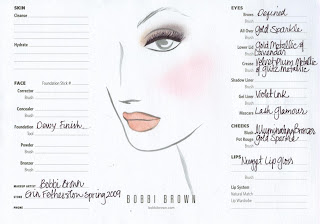 SKIN
Cleanse
Hydrate
FACE
Foundation Stick #
Corrector
Brush
Concealer
Brush
Foundation Dewy Finish
Tool
Powder
Brush
Bronzer
Brush
MAKEUP ARTIST Bobbi Brown
Erin Fetherston Spring 2009
PHONE
BOBBI BROWN
bobbibrown.com
EYES
Brows Defined
Brush
All Over Gold Sparkle
Brush
Lower Lid Gold Metallic &
Brush Lavender
Crease Velvet Plum Metallic
Brush & Quiz Metallic
Shadow Liner
Brush
Gel Liner Violet Ink
Brush
Mascara Lash Glamour
CHEEKS
Blush Illuminating Bronzer
Brush
Pot Rouge Gold Sparkle
Brush
LIPS Nugget Lip Gloss
Brush
Lip System
Natural Match
Lip Wardrobe